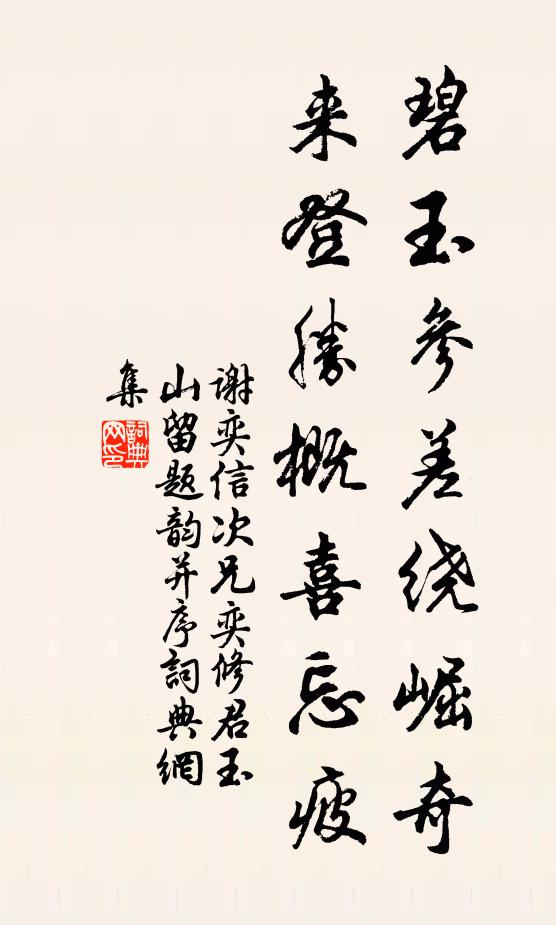 碧玉參差绕崛奇
来登勝概喜忘疲
谢奕信次兄奕修君玉
山留题韵并序詞典網
集
詞典网印